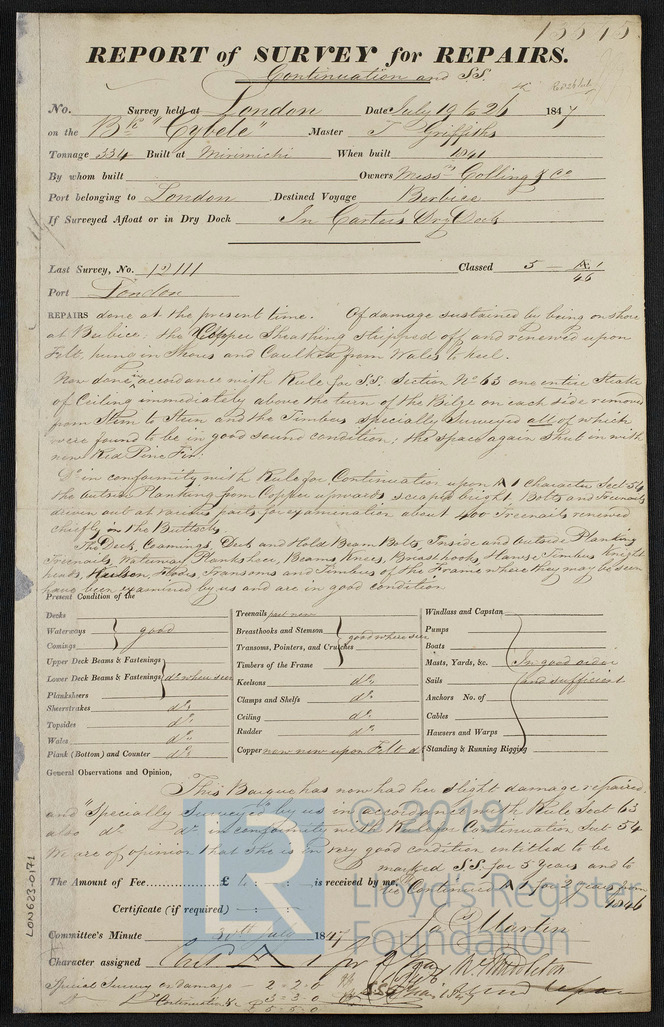 REPORT of SURVEY for REPAIRS.
Continuation and S.S.
No. Survey held at London Date July 19 to 26 1847
on the Bk "Cybele" Master T Griffiths
Tonnage 334 Built at Mirimichi When built 1841
By whom built Owners Messrs Colling & Co
Port belonging to London Destined Voyage Berbice
If Surveyed Afloat or in Dry Dock In Carters Dry Dock
Last Survey, No. 12111 Classed 5 — A.1
46
Port London
REPAIRS done at the present time. Of damage sustained by being on shore
at Berbice; the Copper Sheathing stripped off and renewed upon
Felt, hung in Shores and Caulked from Wales to keel.
Now done, in accordance with Rule for S.S. Section No 63 one entire Strake
of Ceiling immediately above the turn of the Bilge on each side removed
from Stem to Stern and the Timbers specially Surveyed all of which
were found to be in good sound condition; the space again shut in with
new Red Pine Fir.
Do in conformity with Rule for Continuation upon A 1 Character Sect 54
the outside Planking from Copper upwards scraped bright Bolts and Treenails
driven out at various parts for examination about 400 Treenails renewed
chiefly in the Buttocks.
The Deck, Coamings, Deck and Hold Beam Bolts, Inside and Outside Planking
Treenails, Waterway Plankshear, Beams, Knees, Breasthooks, Hawse Timbers Knight
heads, Keelson, Floors, Transoms and Timbers of the Frame where they may be seen
have been examined by us and are in good condition
Present Condition of the
Decks
Waterways good
Comings
Upper Deck Beams & Fastenings
Lower Deck Beams & Fastenings do where seen
Planksheers
Sheerstrakes do
Topsides do
Wales do
Plank (Bottom) and Counter do
Treenails part new
Breasthooks and Stemson good where seen
Transoms, Pointers, and Crutches
Timbers of the Frame
Keelsons do
Clamps and Shelfs do
Ceiling do
Rudder do
Copper now new upon Felt
Windlass and Capstan
Pumps
Boats
Masts, Yards, &c. In good order
Sails and sufficient
Anchors No. of
Cables
Hawsers and Warps
Standing & Running Rigging
General Observations and Opinion,
This Barque has now had her slight damage repaired
and "Specially Surveyed" by us in accordance with Rule Sect 63
also do do in conformity with Rule for Continuation Sect 54
We are of opinion that she is in very good condition entitled to be
marked S.S. for 5 years and to
The Amount of Fee £ : : , is received by me,
be Continued A 1 for 2 years from
1846
Certificate (if required) : :
Committee's Minute 30th July 1847
Jas Martin
Character assigned Cont A 1 for 2
Middleton
Special Survey on damage - 2 : 2 . 0
Do Do Continuation &c 3 : 3 . 0
£ 5 : 5 . 0
LON623-0171
LR
© 2019
Lloyd's Register
Foundation